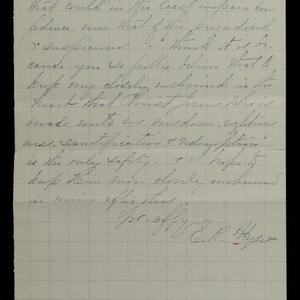 that could in the least impair con
fidence, even that of the prejudiced
& suspicious. I think it is be-
cause you so fully desire that to
keep one closely enshrined in the
heart that Christ Jesus who is
made unto us wisdom, righteous
ness, sanctification & redemption
is the only safety. & I hope to
keep Him more closely enshrined
in mine after this.
Yrs. affy.
E. R. Hyde